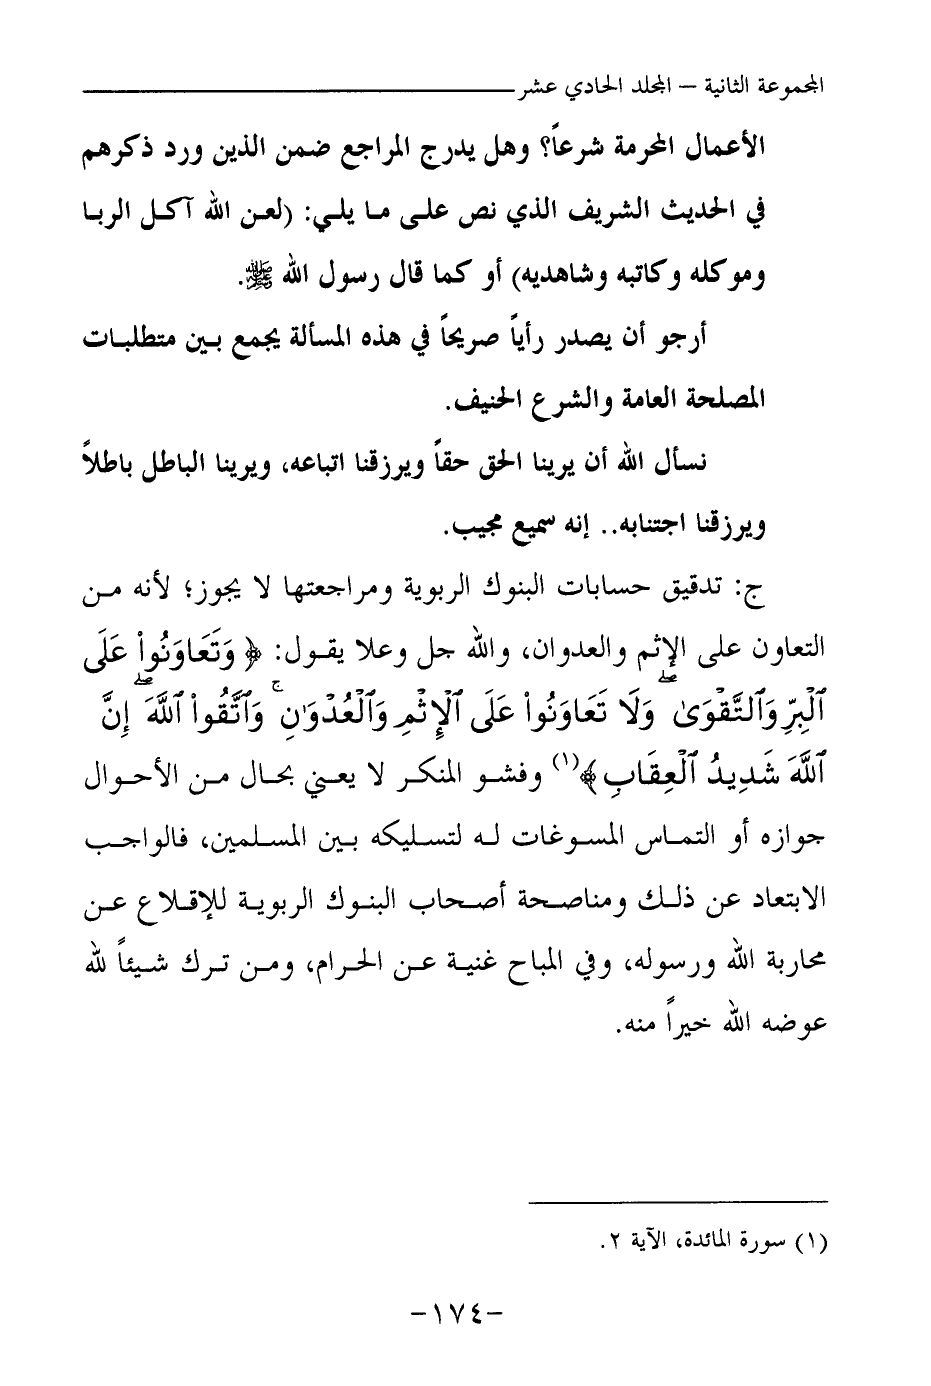 المجموعة الثانية – المجلد الحادي عشر
الأعمال المحرمة شرعاً؟ وهل يدرج المراجع ضمن الذين ورد ذكرهم
في الحديث الشريف الذي نص على ما يلي: (لعن الله آكل الربا
وموكله وكاتبه وشاهديه) أو كما قال رسول الله ﷺ.
أرجو أن يصدر رأياً صريحاً في هذه المسألة يجمع بين متطلبات
المصلحة العامة والشرع الحنيف.
نسأل الله أن يرينا الحق حقاً ويرزقنا اتباعه، ويرينا الباطل باطلاً
ويرزقنا اجتنابه.. إنه سميع مجيب.
ج: تدقيق حسابات البنوك الربوية ومراجعتها لا يجوز؛ لأنه من
التعاون على الإثم والعدوان، والله جل وعلا يقول: ﴿ وَتَعَاوَنُواْ عَلَى
ٱلْبِرِّ وَٱلتَّقْوَىٰ ۖ وَلَا تَعَاوَنُواْ عَلَى ٱلْإِثْمِ وَٱلْعُدْوَٰنِ ۚ وَٱتَّقُواْ ٱللَّهَ ۖ إِنَّ
ٱللَّهَ شَدِيدُ ٱلْعِقَابِ﴾(١) وفشو المنكر لا يعني بحال من الأحوال
جوازه أو التماس المسوغات له لتسليكه بين المسلمين، فالواجب
الابتعاد عن ذلك ومناصحة أصحاب البنوك الربوية للإقلاع عن
محاربة الله ورسوله، وفي المباح غنية عن الحرام، ومن ترك شيئاً لله
عوضه الله خيراً منه.
(١) سورة المائدة، الآية ٢.
-١٧٤-